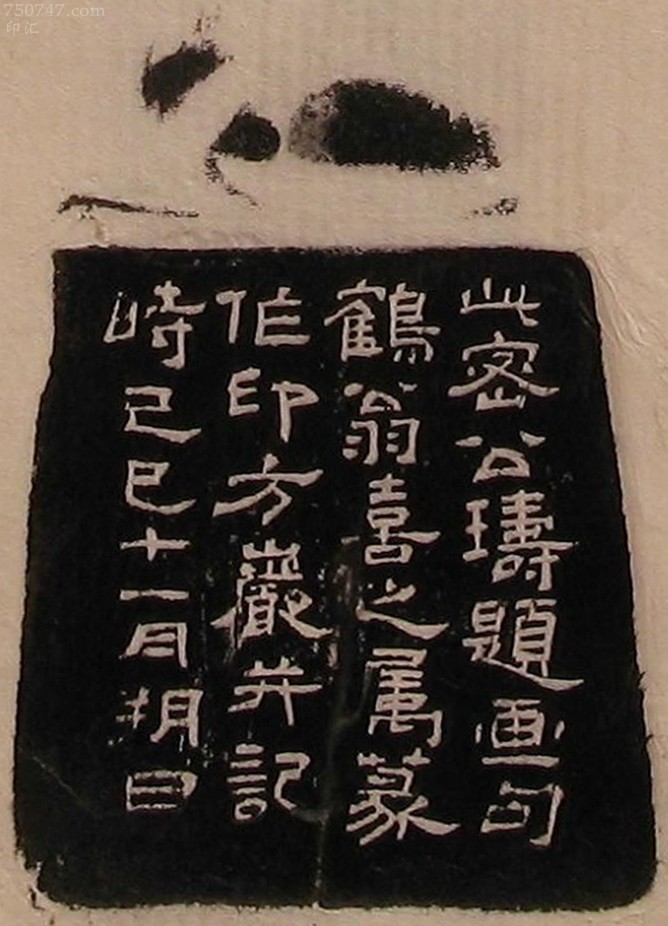 750747.com
印汇
此密公璹題画句
鶴翁喜之属篆
作印方巖并記
時己巳十一月朔日